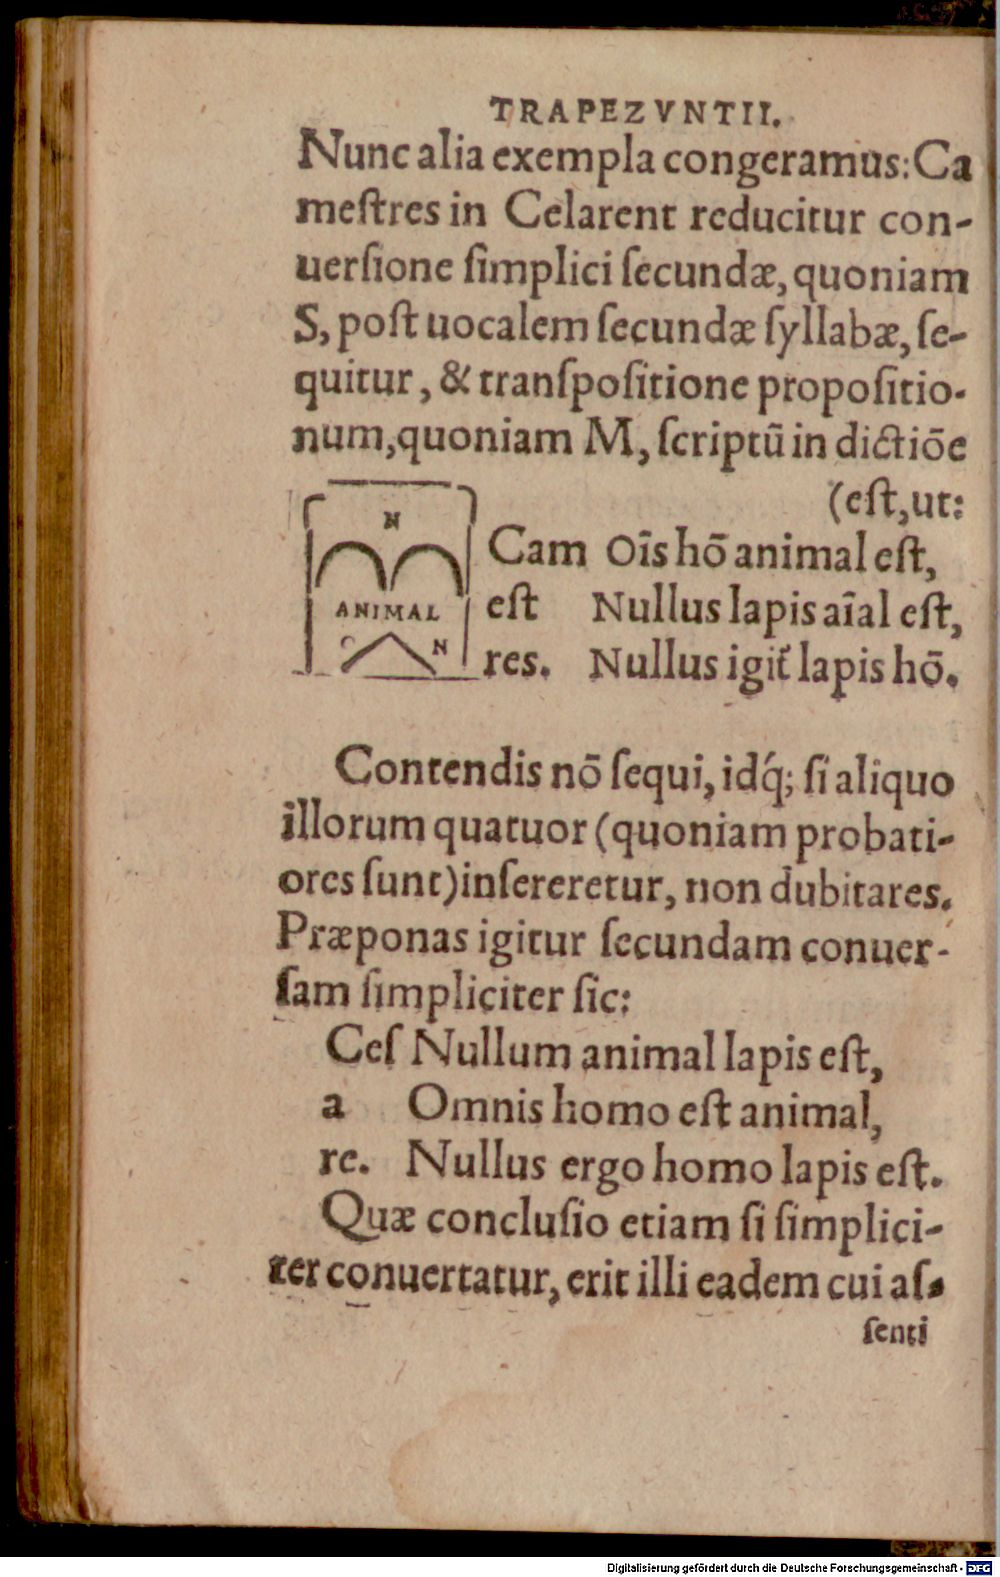 TRAPEZVNTII.
Nunc alia exempla congeramus: Ca
meſtres in Celarent reducitur con-
uerſione ſimplici ſecundæ, quoniam
S, poſt uocalem ſecundæ ſyllabæ, ſe-
quitur, & tranſpoſitione propoſitio-
num, quoniam M, ſcriptū in dictiōe
(eſt, ut:
N
ANIMAL
N
Cam Oīs hō animal eſt,
eſt Nullus lapis aīal eſt,
res. Nullus igit̃ lapis hō.
Contendis nō ſequi, idq́; ſi aliquo
illorum quatuor (quoniam probati-
ores ſunt) inſereretur, non dubitares.
Præponas igitur ſecundam conuer-
ſam ſimpliciter ſic:
Ceſ Nullum animal lapis eſt,
a Omnis homo eſt animal,
re. Nullus ergo homo lapis eſt.
Quæ concluſio etiam ſi ſimplici-
ter conuertatur, erit illi eadem cui aſ-
ſenti
Digitalisierung gefördert durch die Deutsche Forschungsgemeinschaft - DFG